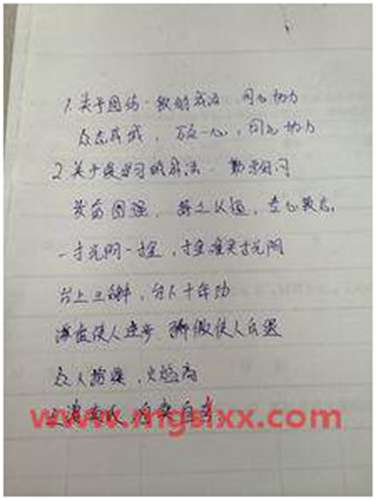 1.关于团结一致的成语:同心协力
众志成城,万众一心,同心协力
2.关于是学习的成语:勤学好问
发奋图强,持之以恒,专心致志。
一寸光阴一寸金,寸金难买寸光阴
台上三分钟,台下十年功
虚心使人进步 骄傲使人落后
众人拾柴,火焰高
自强自
www.mgslxx.com